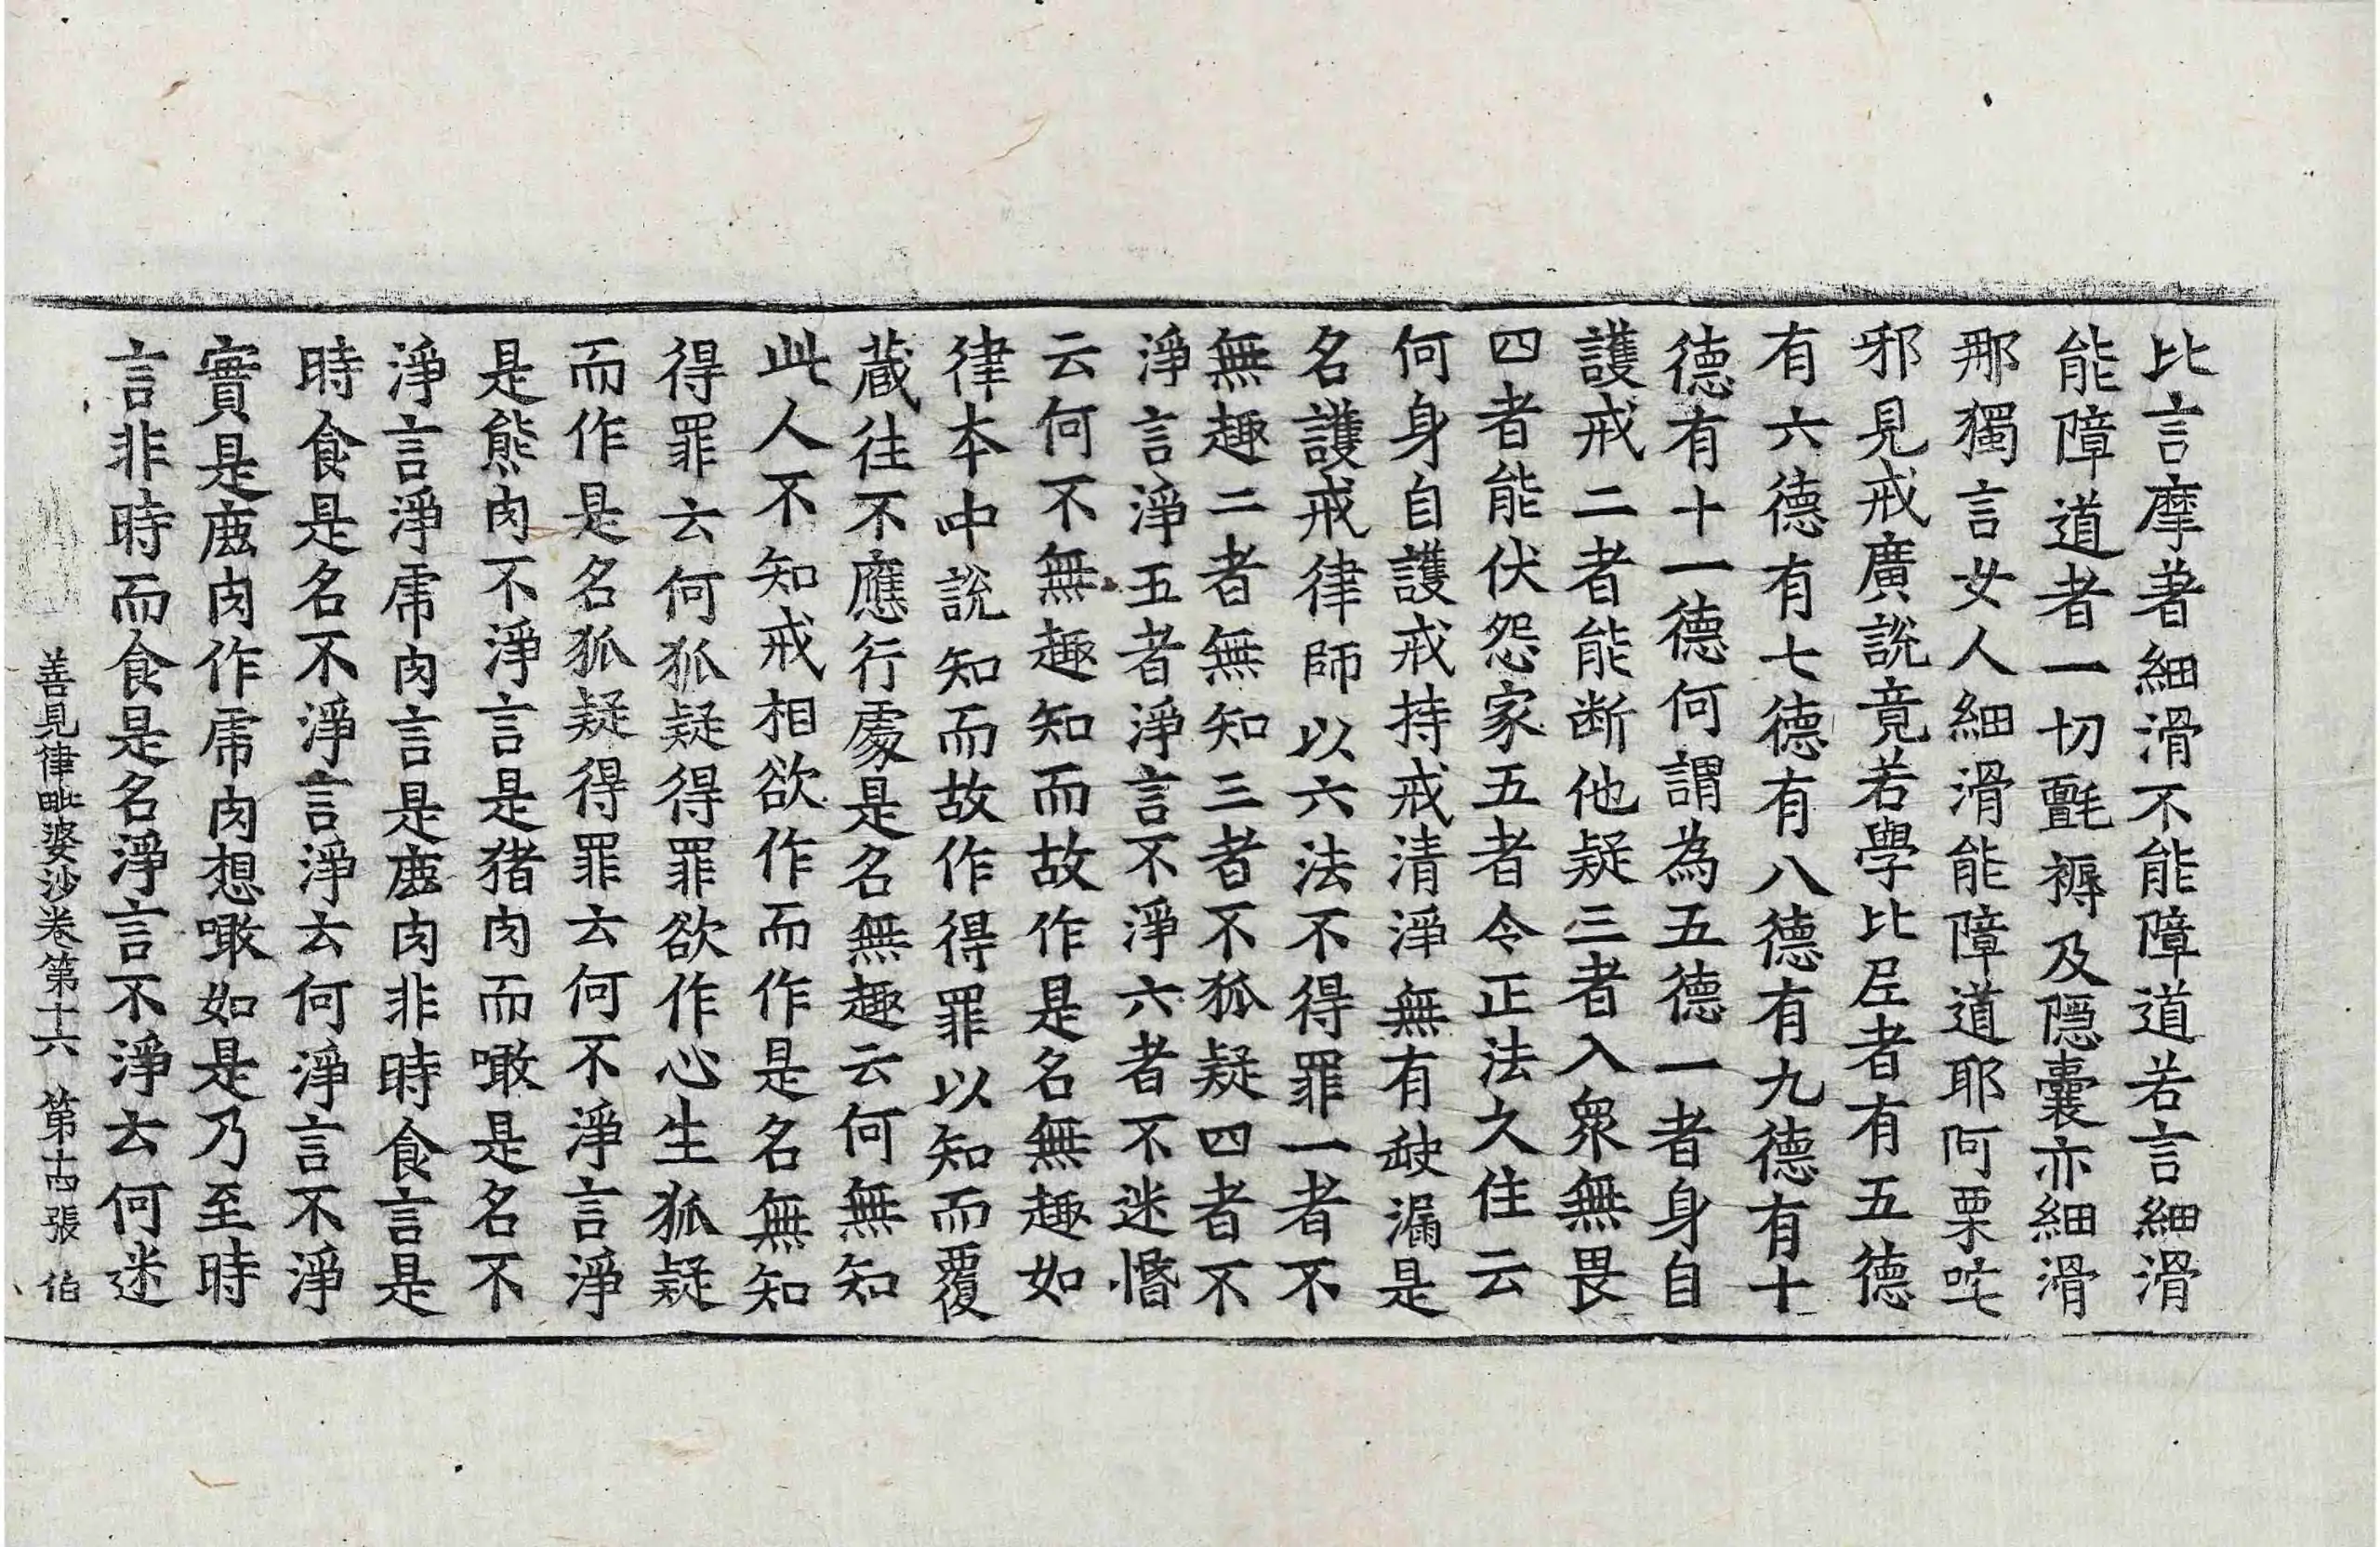 比言摩著細滑不能障道若言細滑
能障道者一切氈褥及隱囊亦細滑
那獨言女人細滑能障道耶阿栗咤
邪見戒廣說竟若學比𡰱者有五德
有六德有七德有八德有九德有十
德有十一德何謂為五德一者身自
護戒二者能断他疑三者入衆無畏
四者能伏怨家五者令正法久住云
何身自護戒持戒清淨無有𡙇漏是
名護戒律師以六法不得罪一者不
無趣二者無知三者不狐疑四者不
淨言淨五者淨言不淨六者不迷惛
云何不無趣知而故作是名無趣如
律本中說知而故作得罪以知而覆
蔵往不應行處是名無趣云何無知
此人不知戒相欲作而作是名無知
得罪云何狐疑得罪欲作心生狐疑
而作是名狐疑得罪云何不淨言淨
是熊肉不淨言是猪肉而噉是名不
淨言淨虎肉言是鹿肉非時食言是
時食是名不淨言淨云何淨言不淨
實是鹿肉作虎肉想噉如是乃至時
言非時而食是名淨言不淨云何迷
善見律毗婆沙卷第十六 第十四張 伯